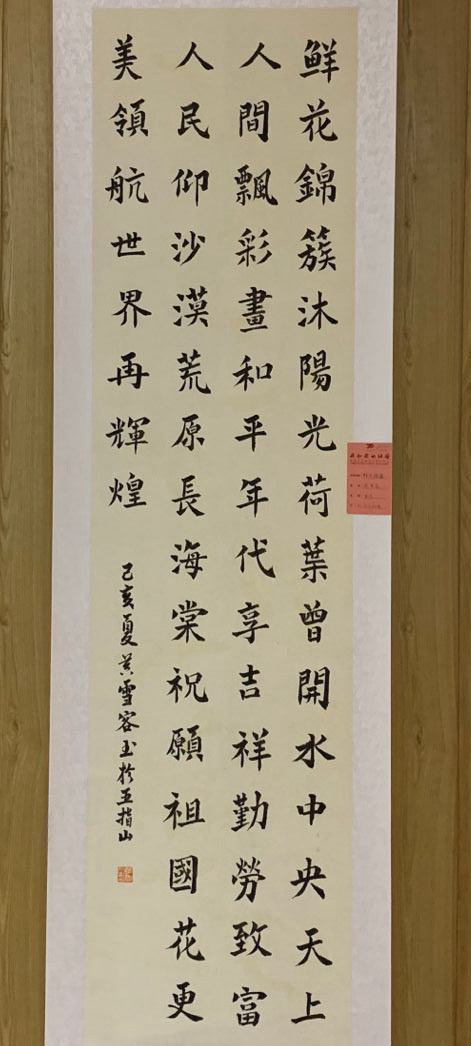 鮮花錦簇沐陽光荷葉曾開水中央天上
人間飄彩畫和平年代享吉祥勤勞致富
人民仰沙漠荒原長海棠祝願祖國花更
美領航世界再輝煌
己亥夏 雪容 於五指山